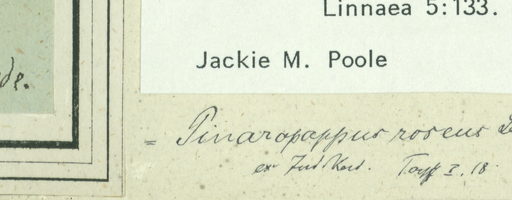 Linnaea 5:133.
Jackie M. Poole
de.
= Pinaropappus roseus
ex Ind. Kew. I. 18